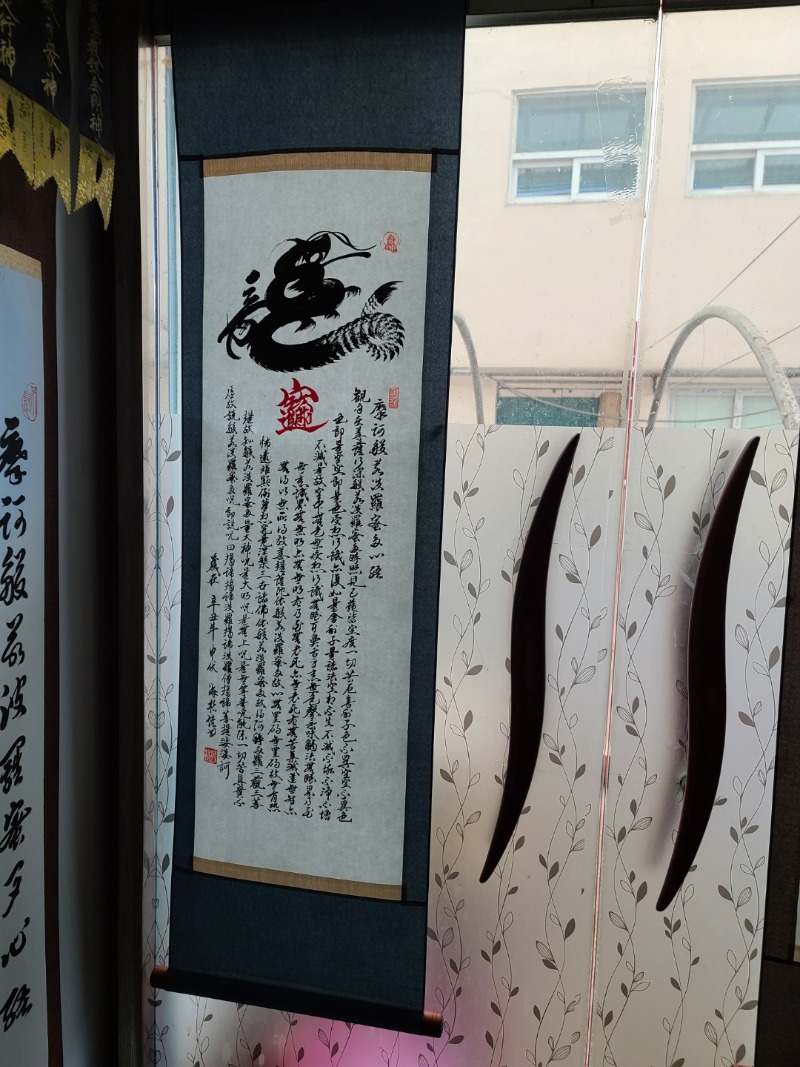 摩訶般若波羅蜜多心経
觀自在菩薩行深般若波羅蜜多時照見五蘊皆空度一切苦厄舍利子色不異空空不異色
色即是空空即是色受想行識亦復如是舍利子是諸法空相不生不滅不垢不淨不增
不減是故空中無色無受想行識無眼耳鼻舌身意無色聲香味觸法無眼界乃至
無意識界無無明亦無無明盡乃至無老死亦無老死盡無苦集滅道無智亦
無得以無所得故菩提薩埵依般若波羅蜜多故心無罣礙無罣礙故無有恐
怖遠離顚倒夢想究竟涅槃三世諸佛依般若波羅蜜多故得阿耨多羅三藐三菩
提故知般若波羅蜜多是大神呪是大明呪是無上呪是無等等呪能除一切苦眞實不
虛故說般若波羅蜜多呪卽說呪曰揭諦揭諦波羅揭諦波羅僧揭諦菩提娑婆訶
歲在 辛丑年
摩訶般若波羅蜜多心経